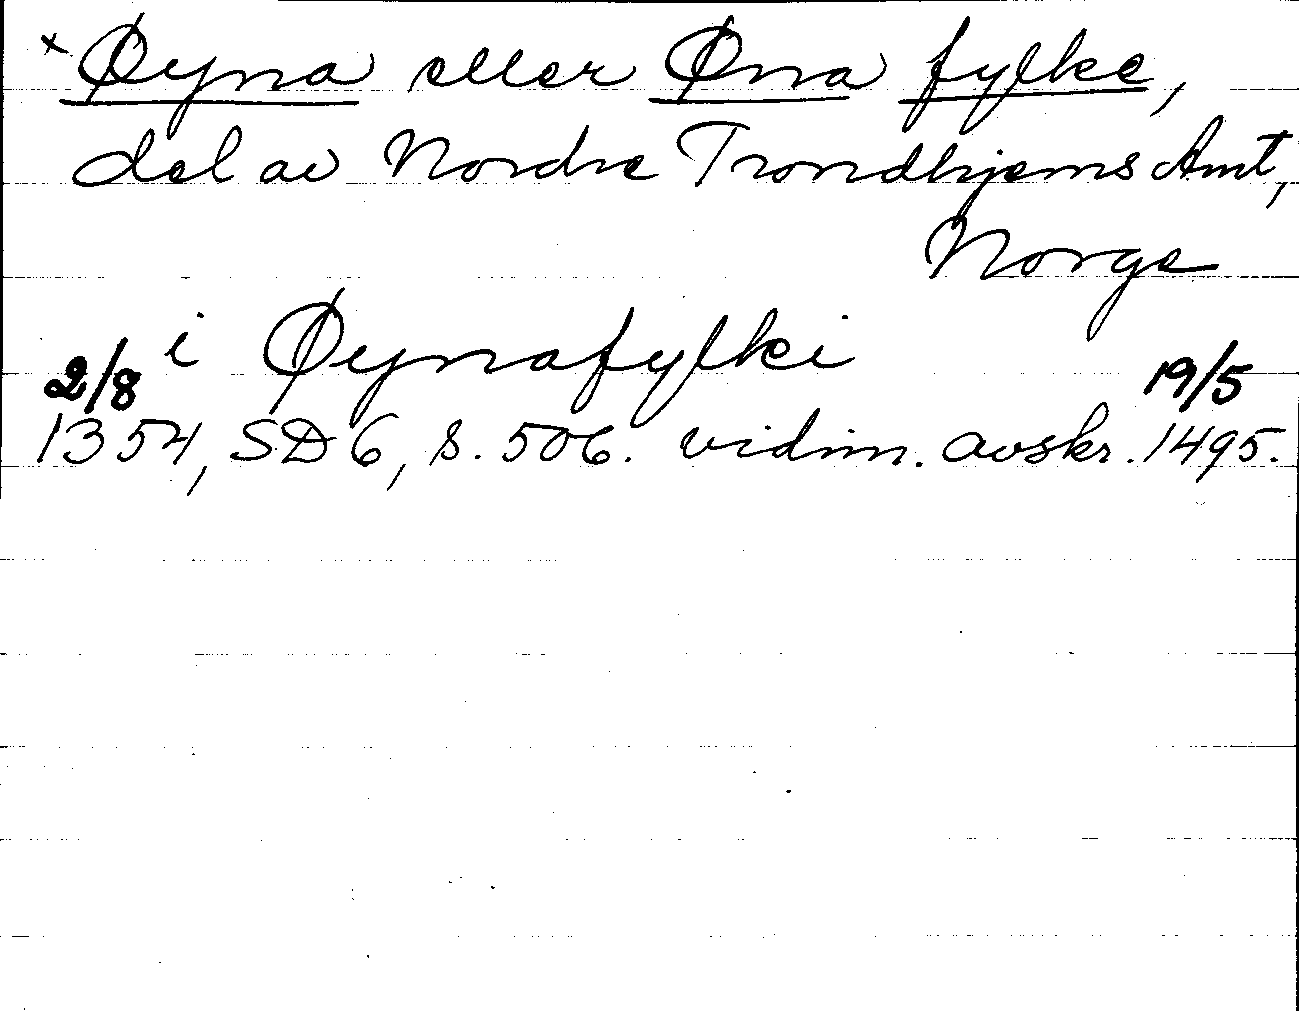 x Øyna eller Øna fylke,
del av Nordre Trondhjems Amt,
Norge
i Øynafylki
2/8 19/5
1354, SD 6, s. 506. vidim. avskr. 1495.